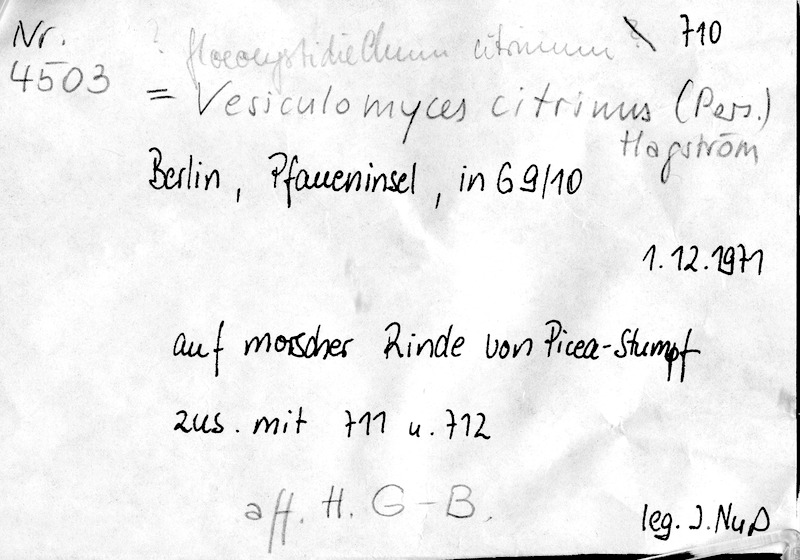 Nr. 4503
? Gloeocystidiellum citrinum ? 710
= Vesiculomyces citrinus (Pers.)
Hagström
Berlin, Pfaueninsel, in G9/10
1.12.1971
auf morscher Rinde von Picea-Stumpf
zus. mit 711 u. 712
aff. H. G-B.
leg. I. Nuß